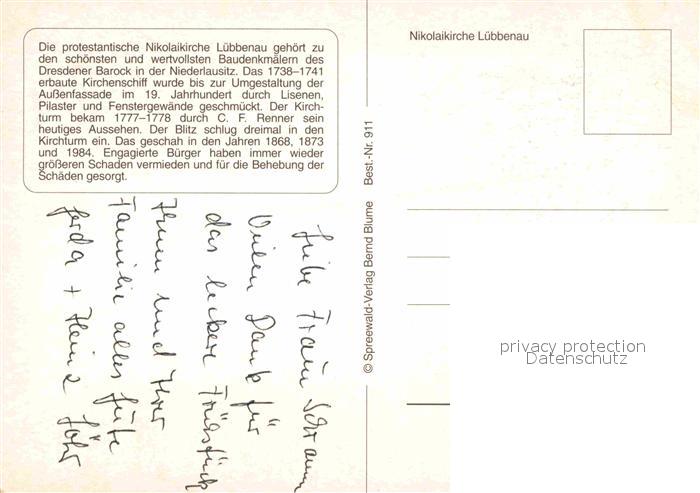 Die protestantische Nikolaikirche Lübbenau gehört zu
den schönsten und wertvollsten Baudenkmälern des
Dresdener Barock in der Niederlausitz. Das 1738–1741
erbaute Kirchenschiff wurde bis zur Umgestaltung der
Außenfassade im 19. Jahrhundert durch Lisenen,
Pilaster und Fenstergewände geschmückt. Der Kirch-
turm bekam 1777–1778 durch C. F. Renner sein
heutiges Aussehen. Der Blitz schlug dreimal in den
Kirchturm ein. Das geschah in den Jahren 1868, 1873
und 1984. Engagierte Bürger haben immer wieder
größeren Schaden vermieden und für die Behebung der
Schäden gesorgt.
Liebe Frau Schramm
Vielen Dank für
das leckere Frühstück
Ihnen und Ihrer
Familie alles Gute
Gerda + Heinz
© Spreewald-Verlag Bernd Blume Best.-Nr. 911
Nikolaikirche Lübbenau
privacy protection
Datenschutz